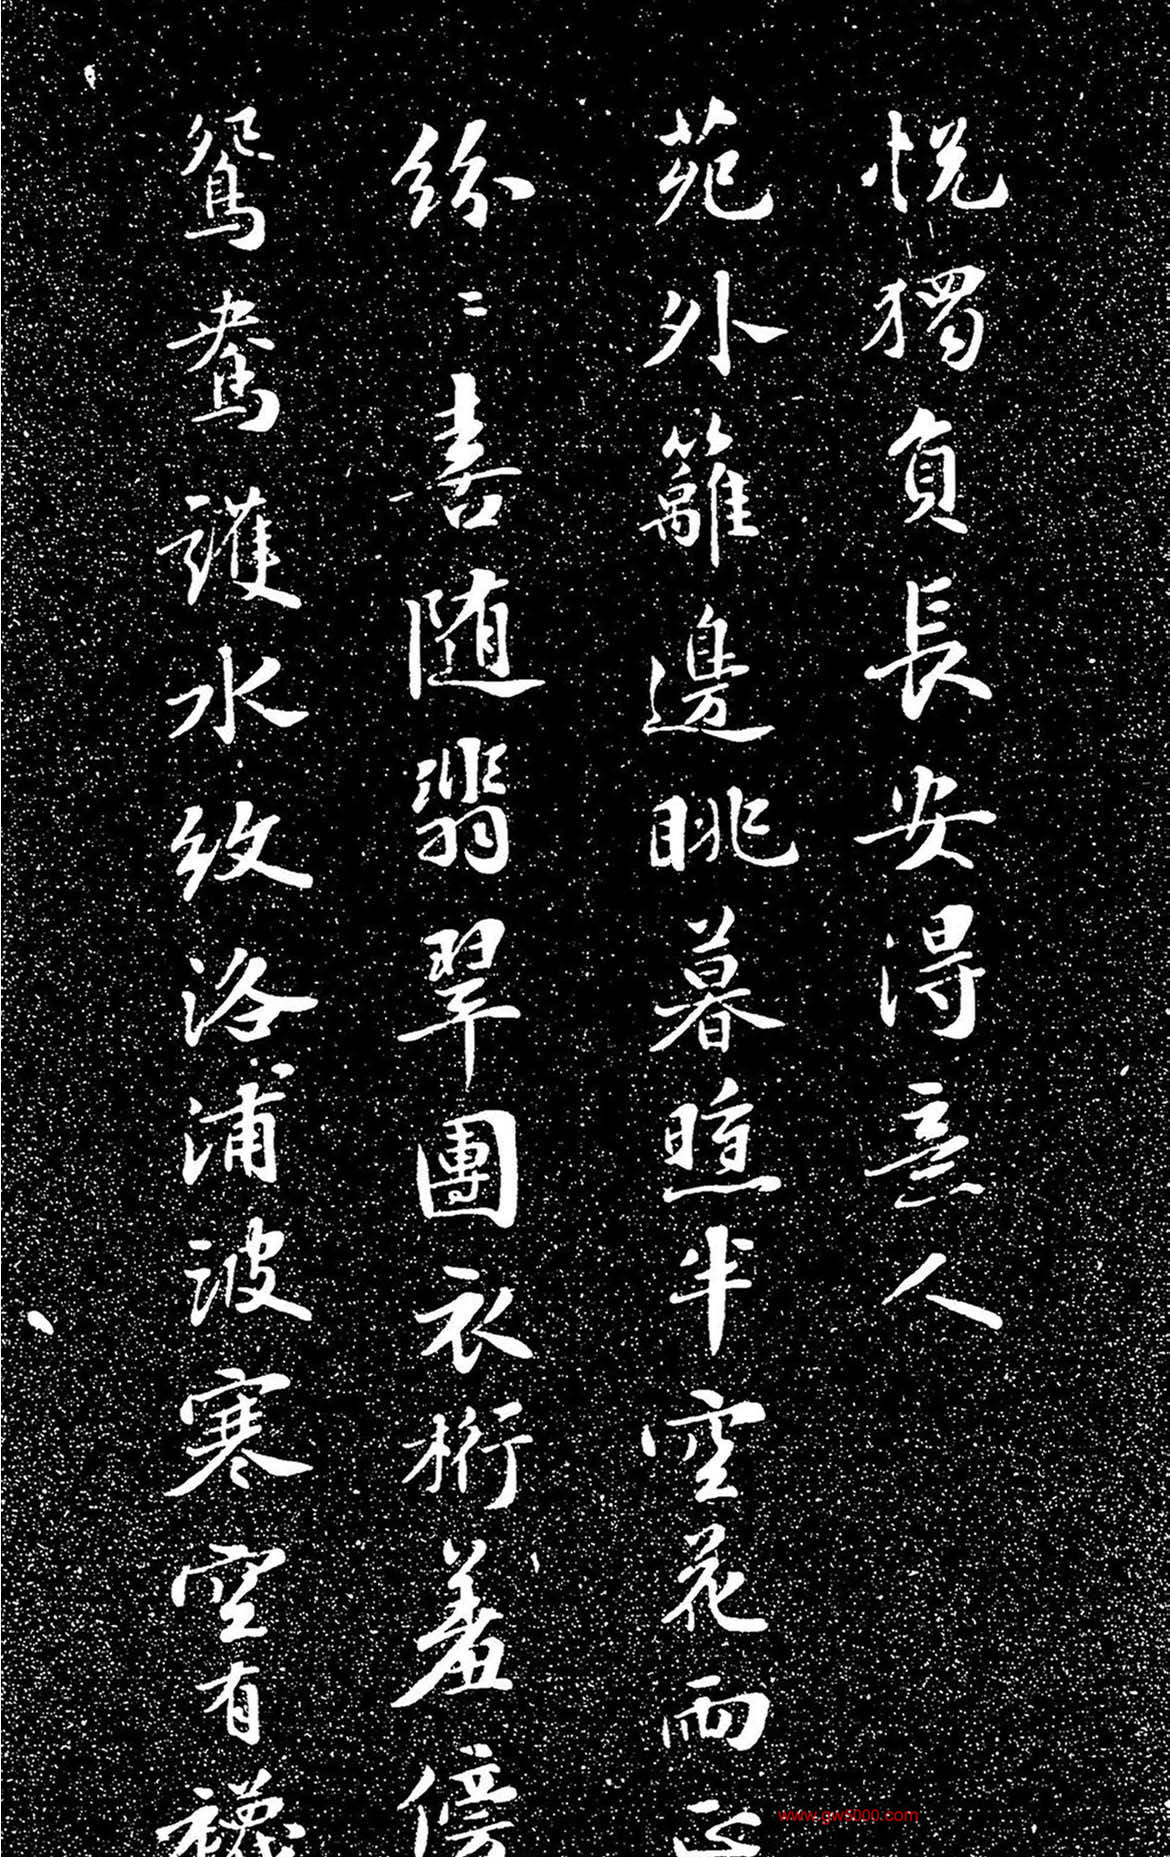 悦獨負長安得意人
苑外籬邊眺暮煙半空花雨正
紛〻喜隨翡翠團衣桁羞傍
鴛鴦護水紋洛浦波寒空有襪
www.gw5000.com